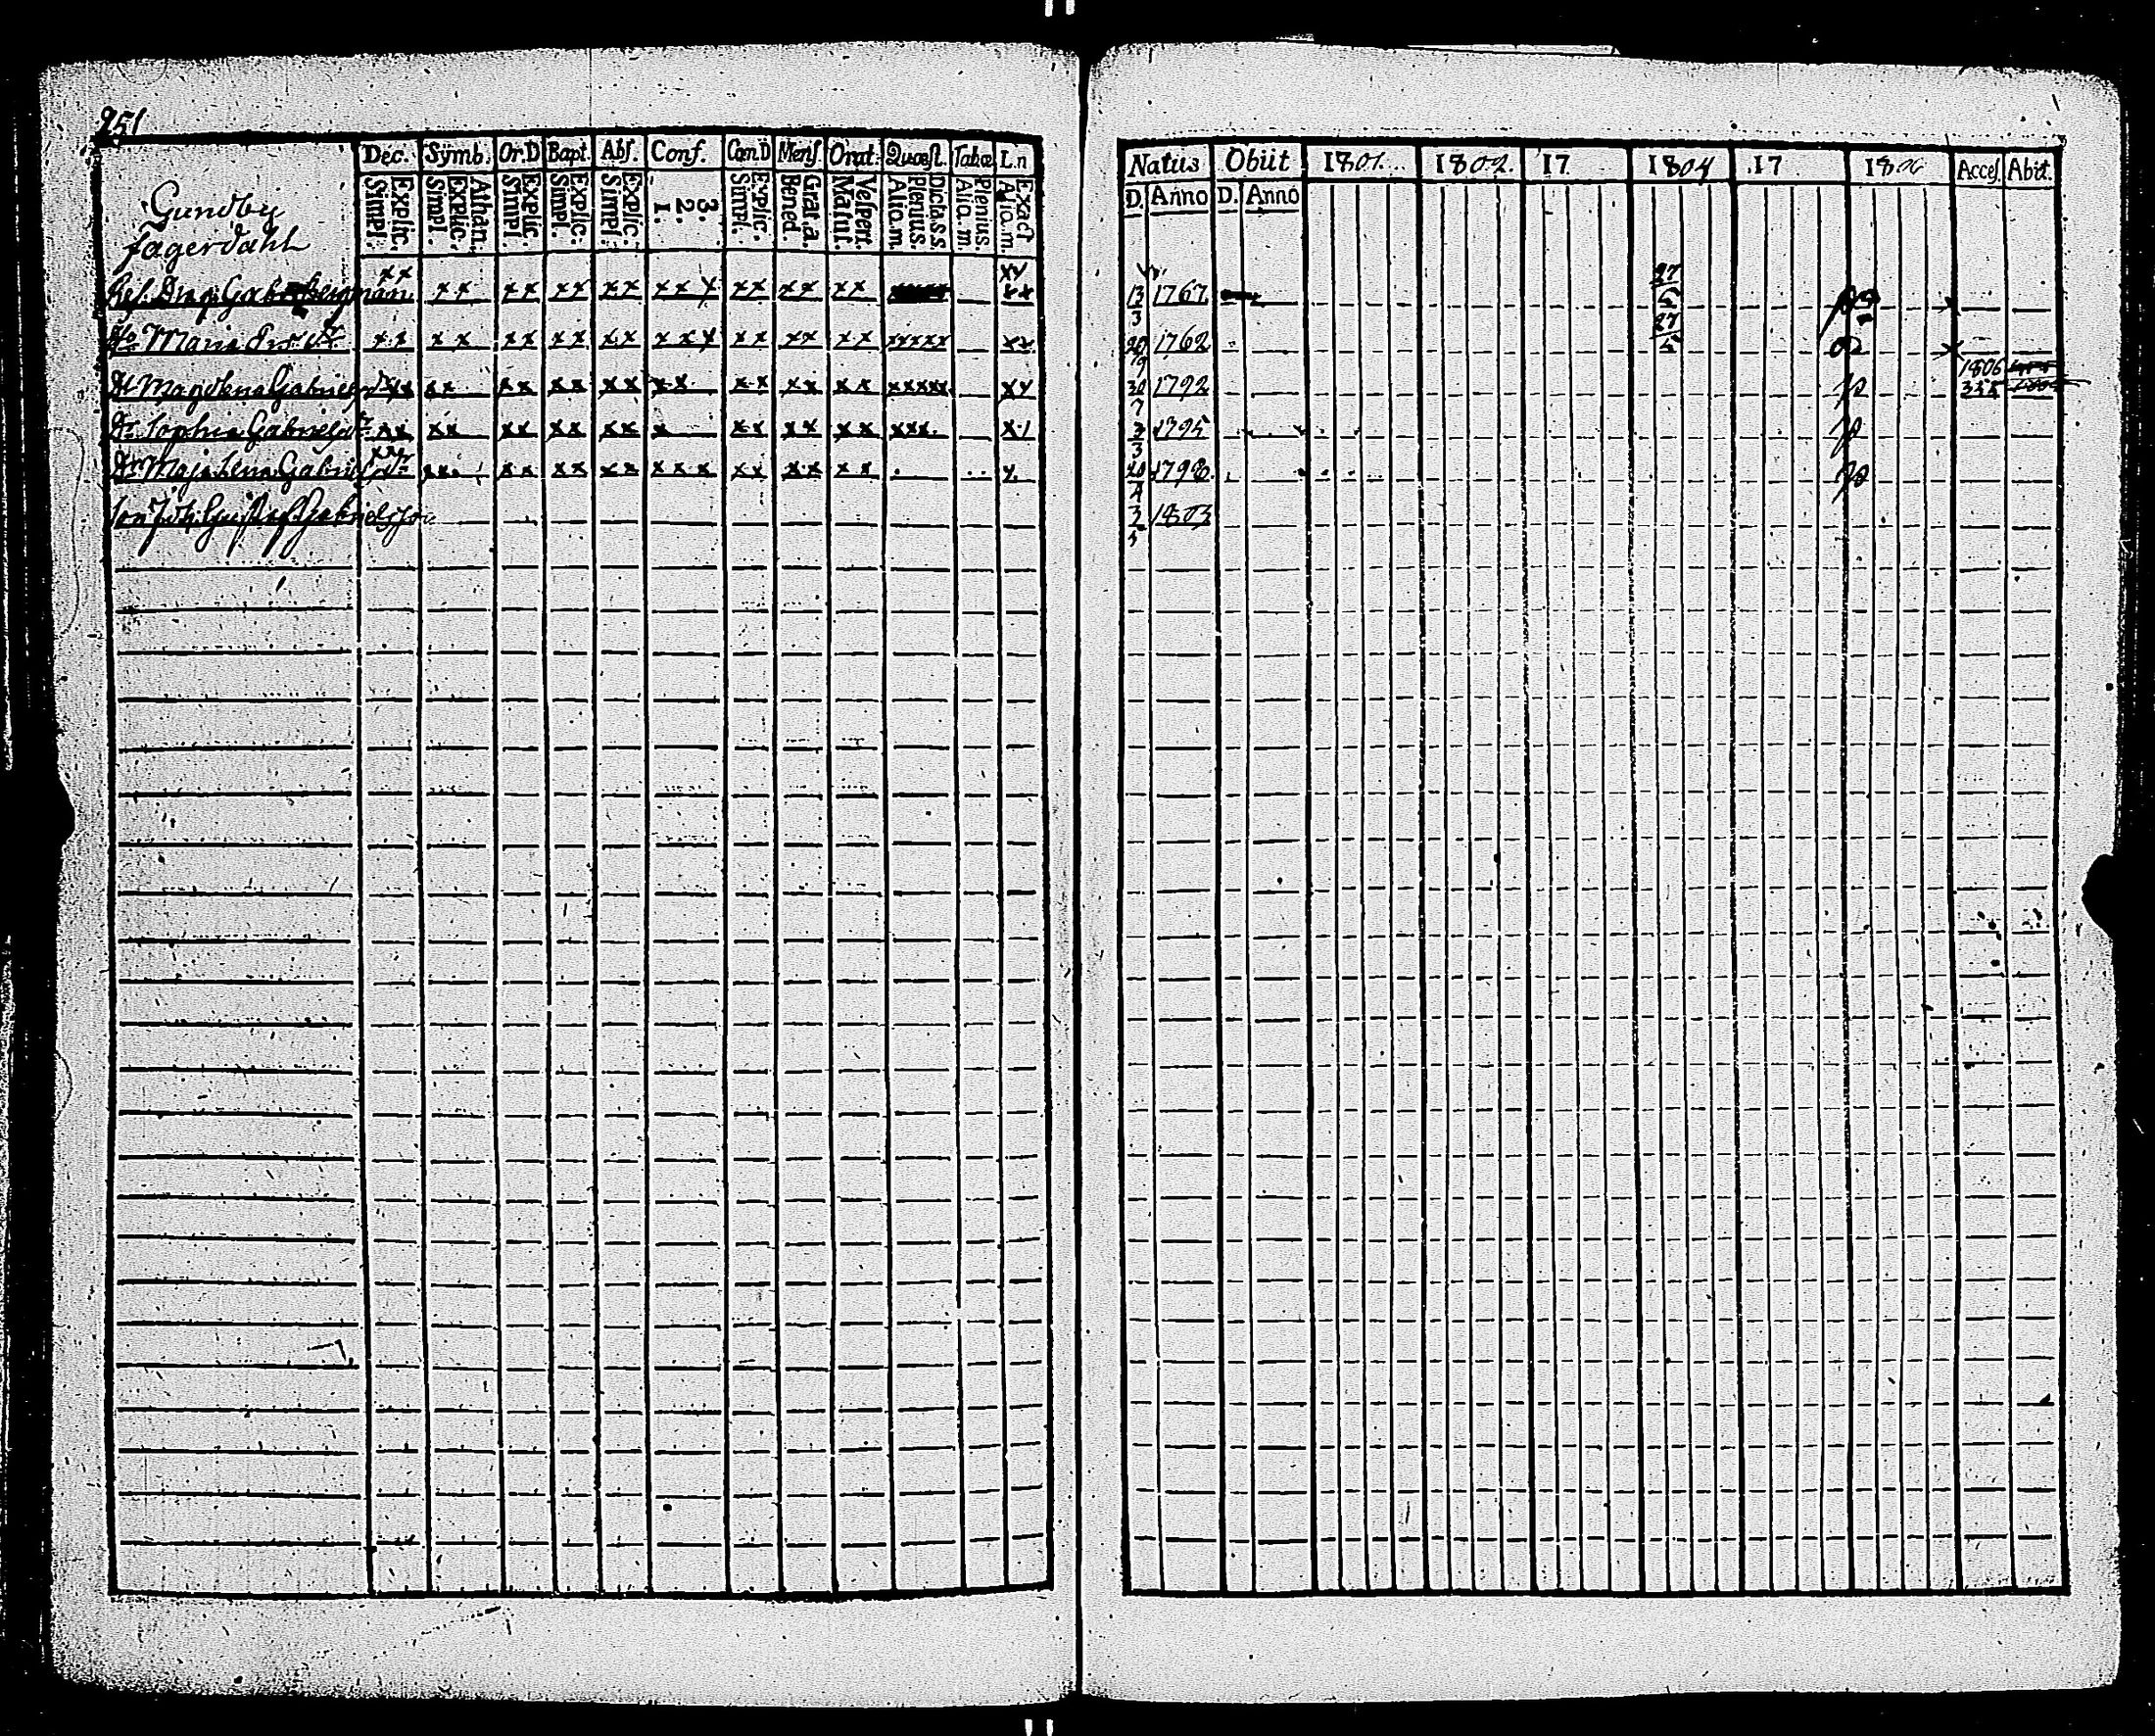 251
Dec. Symb. Or.D Bapt. Abſ. Conf. Cœn.D Menſ. Orat. Quæſt. Tabæ L.n
Explic. Simpl. Athan. Explic. Simpl. Explic. Simpl. Explic. Simpl. Explic. Simpl. 3. 2. 1. Explic. Simpl. Grat.a. Bened. Veſpert. Matut. Dicta s.s. Plenius. Alio.m. Plenius. Alio.m. Exact Alio.m.
Natus Obiit 1801 1802 17 1804 17 1806 Acceſ. Abit.
D. Anno D. Anno
Gundby
Fagerdahl
Gabr. Bergman xx xx xx xx xx xxx xx xx xx xx 13/3 1767 27/5
Maria Pers dr xx xx xx xx xx xxx xx xx xx xxxxx xx 20/9 1762 27/5
Dr Magdlena Gabriels dr xx xx xx xx xx xx xx xx xx xxxxx xx 30/7 1792 1806 355
Dr Sophia Gabriels dr xx xx xx xx xx x xx xx xx xxx 1795
Dr Maja Lena Gabriels dr xx xx xx xx xx xxx xx xx xx x 20/4 1798
Son Joh. Gustaf Gabrielsson 3/5 1803